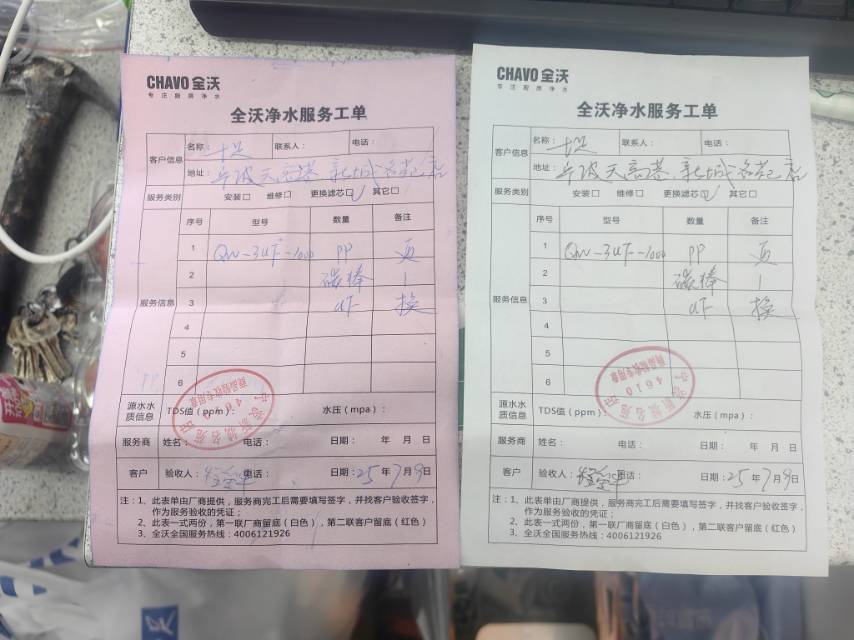 CHAVO 全沃
专注厨房净水
全沃净水服务工单
客户信息
名称： 十足
联系人：
电话：
地址：
服务类别
安装□ 维修□ 更换滤芯□✓ 其它□
服务信息
序号 型号 数量 备注
1 QW-3UF-1000 PP 更
2 碳棒 1
3 UF 换
4
5
6
源水水质信息
TDS值（ppm）： 水压（mpa）：
服务商 姓名： 电话： 日期： 年 月 日
客户 验收人： 电话： 日期：25年7月9日
注：1、此表单由厂商提供，服务商完工后需要填写签字，并找客户验收签字，
作为服务验收的凭证；
2、此表一式两份，第一联厂商留底（白色），第二联客户留底（红色）
3、全沃全国服务热线：4006121926
CHAVO 全沃
专注厨房净水
全沃净水服务工单
客户信息
名称： 十足
联系人：
电话：
地址：
服务类别
安装□ 维修□ 更换滤芯□✓ 其它□
服务信息
序号 型号 数量 备注
1 QW-3UF-1000 PP 更
2 碳棒 1
3 UF 换
4
5
6
商品验收专用章
4610
源水水质信息
TDS值（ppm）： 水压（mpa）：
服务商 姓名： 电话： 日期： 年 月 日
客户 验收人： 电话： 日期：25年7月9日
注：1、此表单由厂商提供，服务商完工后需要填写签字，并找客户验收签字，
作为服务验收的凭证；
2、此表一式两份，第一联厂商留底（白色），第二联客户留底（红色）
3、全沃全国服务热线：4006121926